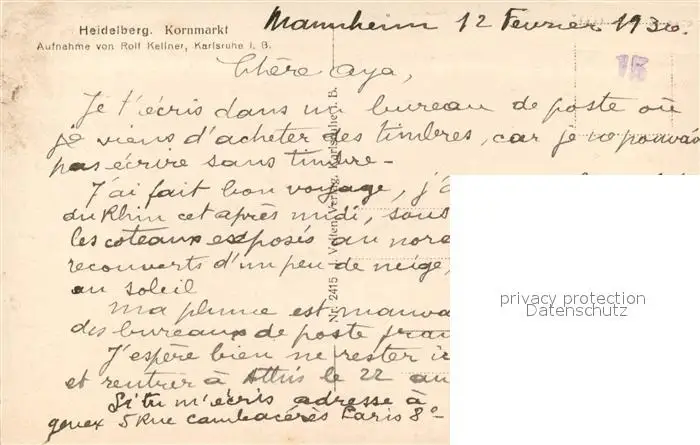 Heidelberg. Kornmarkt
Aufnahme von Rolf Kellner, Karlsruhe i. B.
Mannheim 12 Fevrier 1930.
15
Chère Aya,
Je t'écris dans un bureau de poste où
je viens d'acheter des timbres, car je ne pouvais
pas écrire sans timbre -
J'ai fait bon voyage, j'a
du Rhin cet après midi, sous
les coteaux exposés au nord
recouverts d'un peu de neige,
au soleil
Ma plume est mauva
des bureaux de poste fran
J'espère bien ne rester ic
et rentrer à Athis le 22 au
Si tu m'écris adresse à
5 Rue Cambacérès Paris 8e
Nr. 2415 Velten, Verlag, Karlsruhe i. B.
privacy protection
Datenschutz